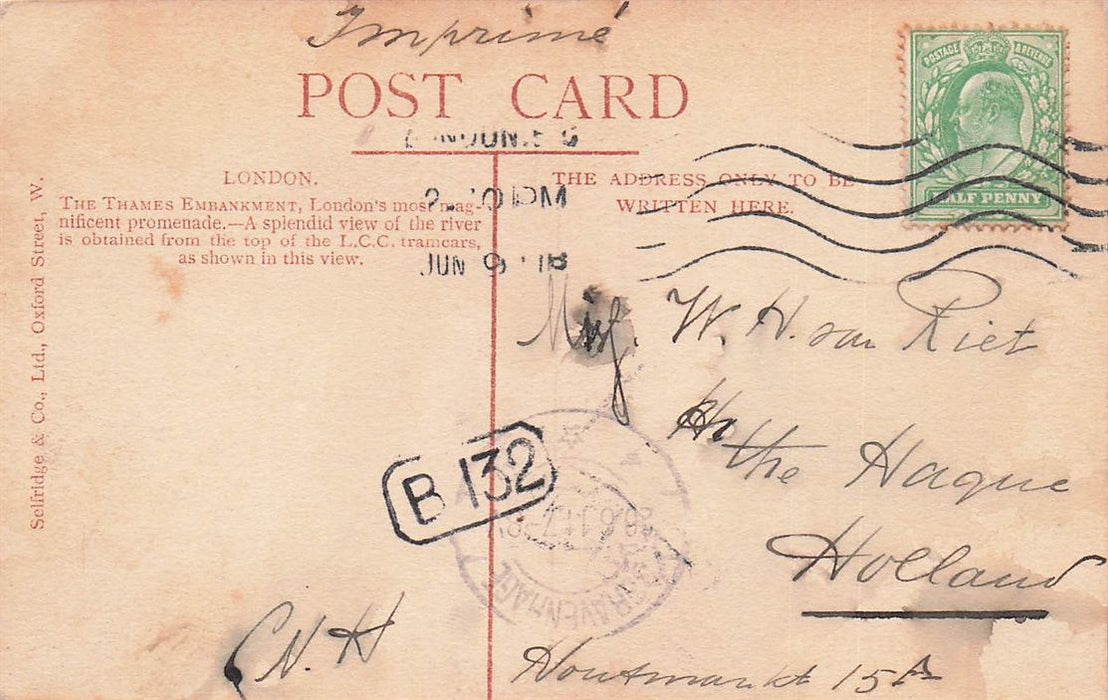 Imprimé
POST CARD
LONDON.
THE THAMES EMBANKMENT, London's most mag-
nificent promenade.—A splendid view of the river
is obtained from the top of the L.C.C. tramcars,
as shown in this view.
Selfridge & Co., Ltd., Oxford Street, W.
THE ADDRESS ONLY TO BE
WRITTEN HERE.
POSTAGE & REVENUE
HALF PENNY
PM
JUN 9
W. H. van Riet
the Hague
Holland
Houtmarkt 15A
B 132
'S GRAVENHAGE
N. H